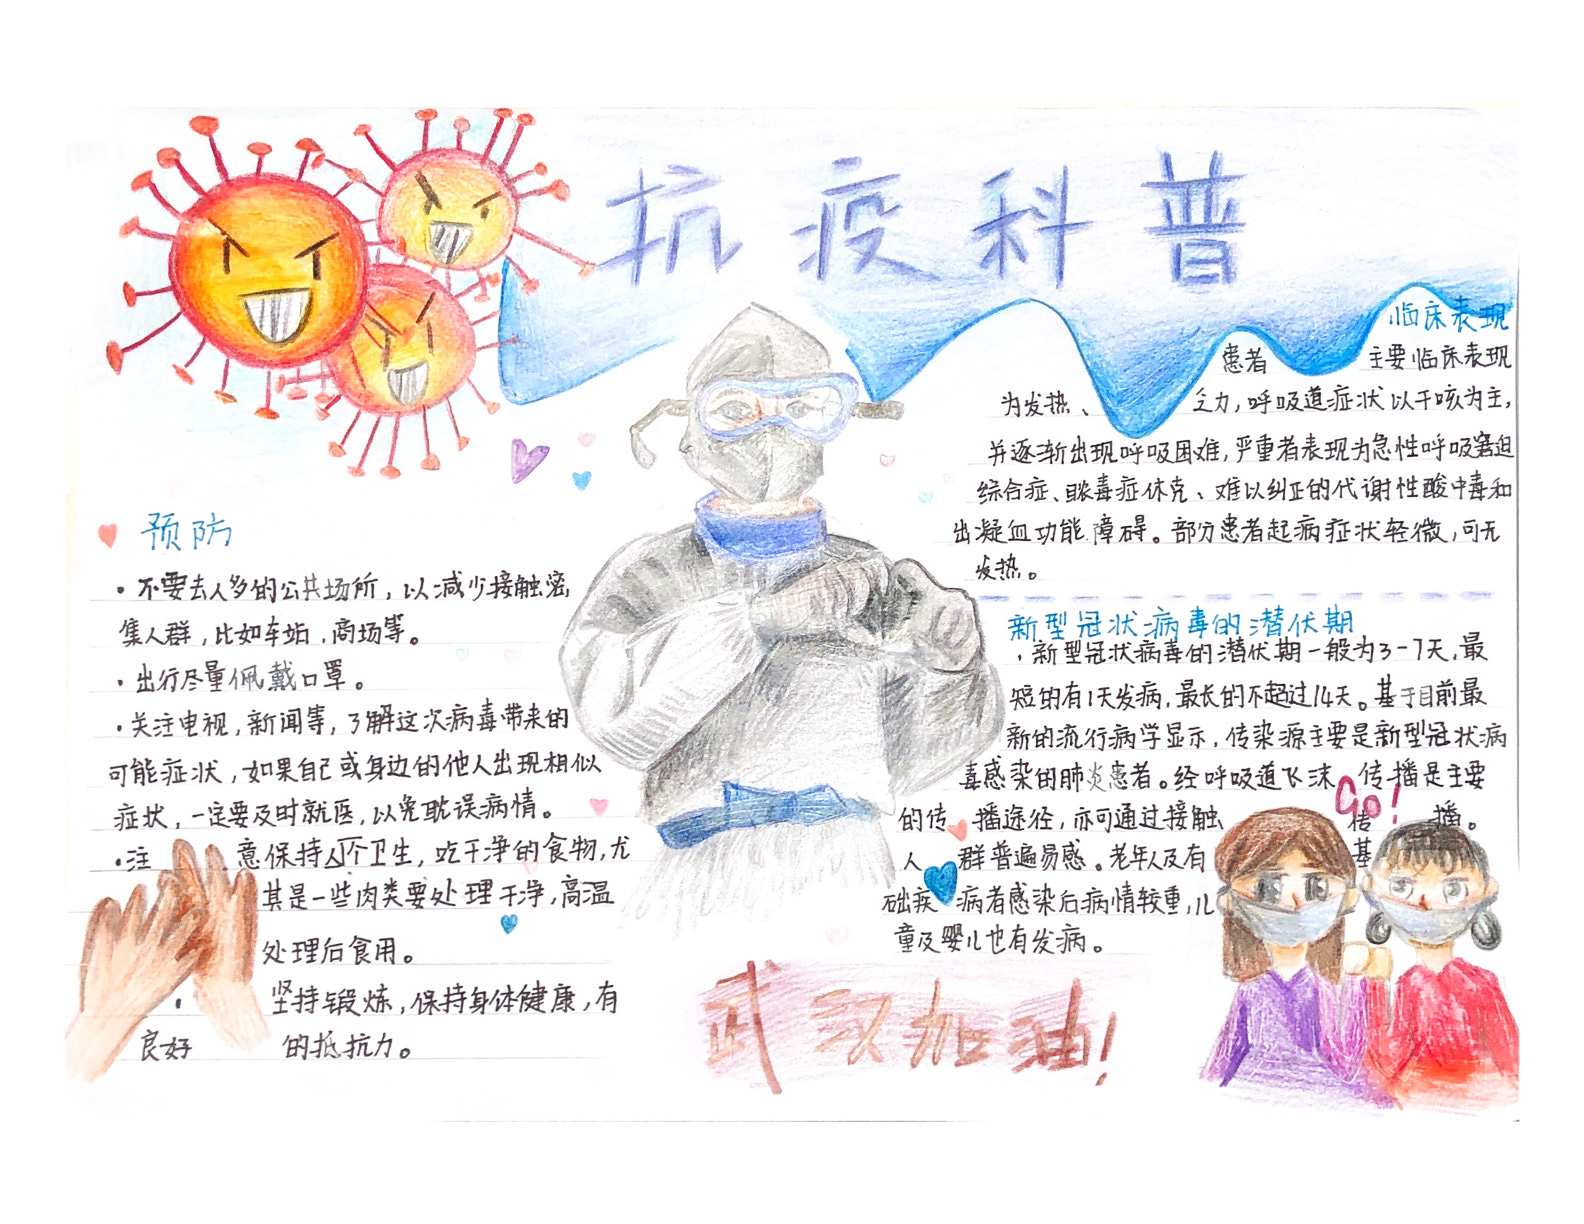 抗疫科普
预防
·不要去人多的公共场所，以减少接触密
集人群，比如车站、商场等。
·出行尽量佩戴口罩。
·关注电视，新闻等，了解这次病毒带来的
可能症状，如果自己或身边的他人出现相似
症状，一定要及时就医，以免耽误病情。
·注意保持个卫生，吃干净的食物，尤
其是一些肉类要处理干净，高温
处理后食用。
·坚持锻炼，保持身体健康，有
良好的抵抗力。
临床表现
患者主要临床表现
为发热、乏力，呼吸道症状以干咳为主，
并逐渐出现呼吸困难，严重者表现为急性呼吸窘迫
综合症、脓毒症休克、难以纠正的代谢性酸中毒和
出凝血功能障碍。部分患者起病症状轻微，可无
发热。
新型冠状病毒的潜伏期
·新型冠状病毒的潜伏期一般为3-7天，最
短的有1天发病，最长的不超过14天。基于目前最
新的流行病学显示，传染源主要是新型冠状病
毒感染的肺炎患者。经呼吸道飞沫传播是主要
的传播途径，亦可通过接触传播。
人群普遍易感。老年人及有基
础疾病者感染后病情较重，儿
童及婴儿也有发病。
Go!
武汉加油！